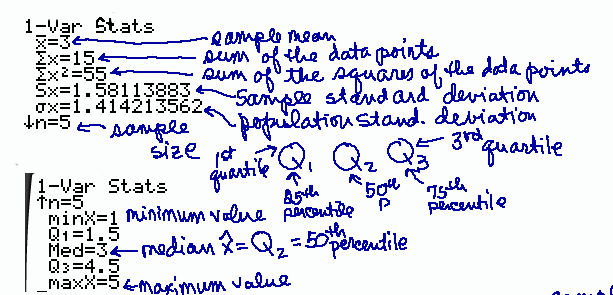 1-Var Stats
x̄=3 ← sample mean
Σx=15 ← sum of the data points
Σx²=55 ← sum of the squares of the data points
Sx=1.58113883 ← sample standard deviation
σx=1.414213562 ← population stand. deviation
↓n=5 ← sample size
1st quartile Q1 Q2 Q3 ← 3rd quartile
25th percentile 50th P 75th percentile
1-Var Stats
↑n=5
minX=1 minimum value
Q1=1.5
Med=3 ← median x̂ = Q2 = 50th percentile
Q3=4.5
maxX=5 ← maximum value